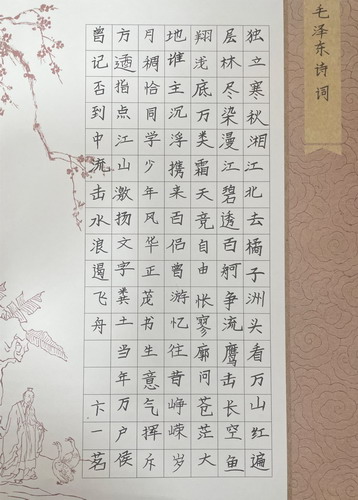 毛泽东诗词
独立寒秋湘江北去橘子洲头看万山红遍
层林尽染漫江碧透百舸争流鹰击长空鱼
翔浅底万类霜天竞自由怅寥廓问苍茫大
地谁主沉浮携来百侣曾游忆往昔峥嵘岁
月稠恰同学少年风华正茂书生意气挥斥
方遒指点江山激扬文字粪土当年万户侯
曾记否到中流击水浪遏飞舟 卞一茗